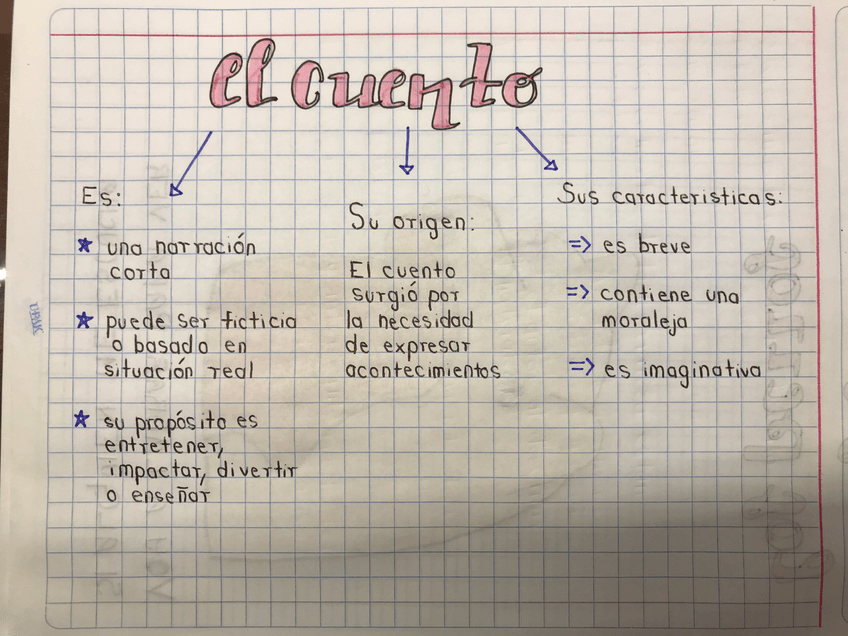 el cuento
Es:
★ una narración
corta
★ puede ser ficticio
o basado en
situación real
★ su propósito es
entretener,
impactar, divertir
o enseñar
Su origen:
El cuento
surgió por
la necesidad
de expresar
acontecimientos
Sus características:
=> es breve
=> contiene una
moraleja
=> es imaginativa